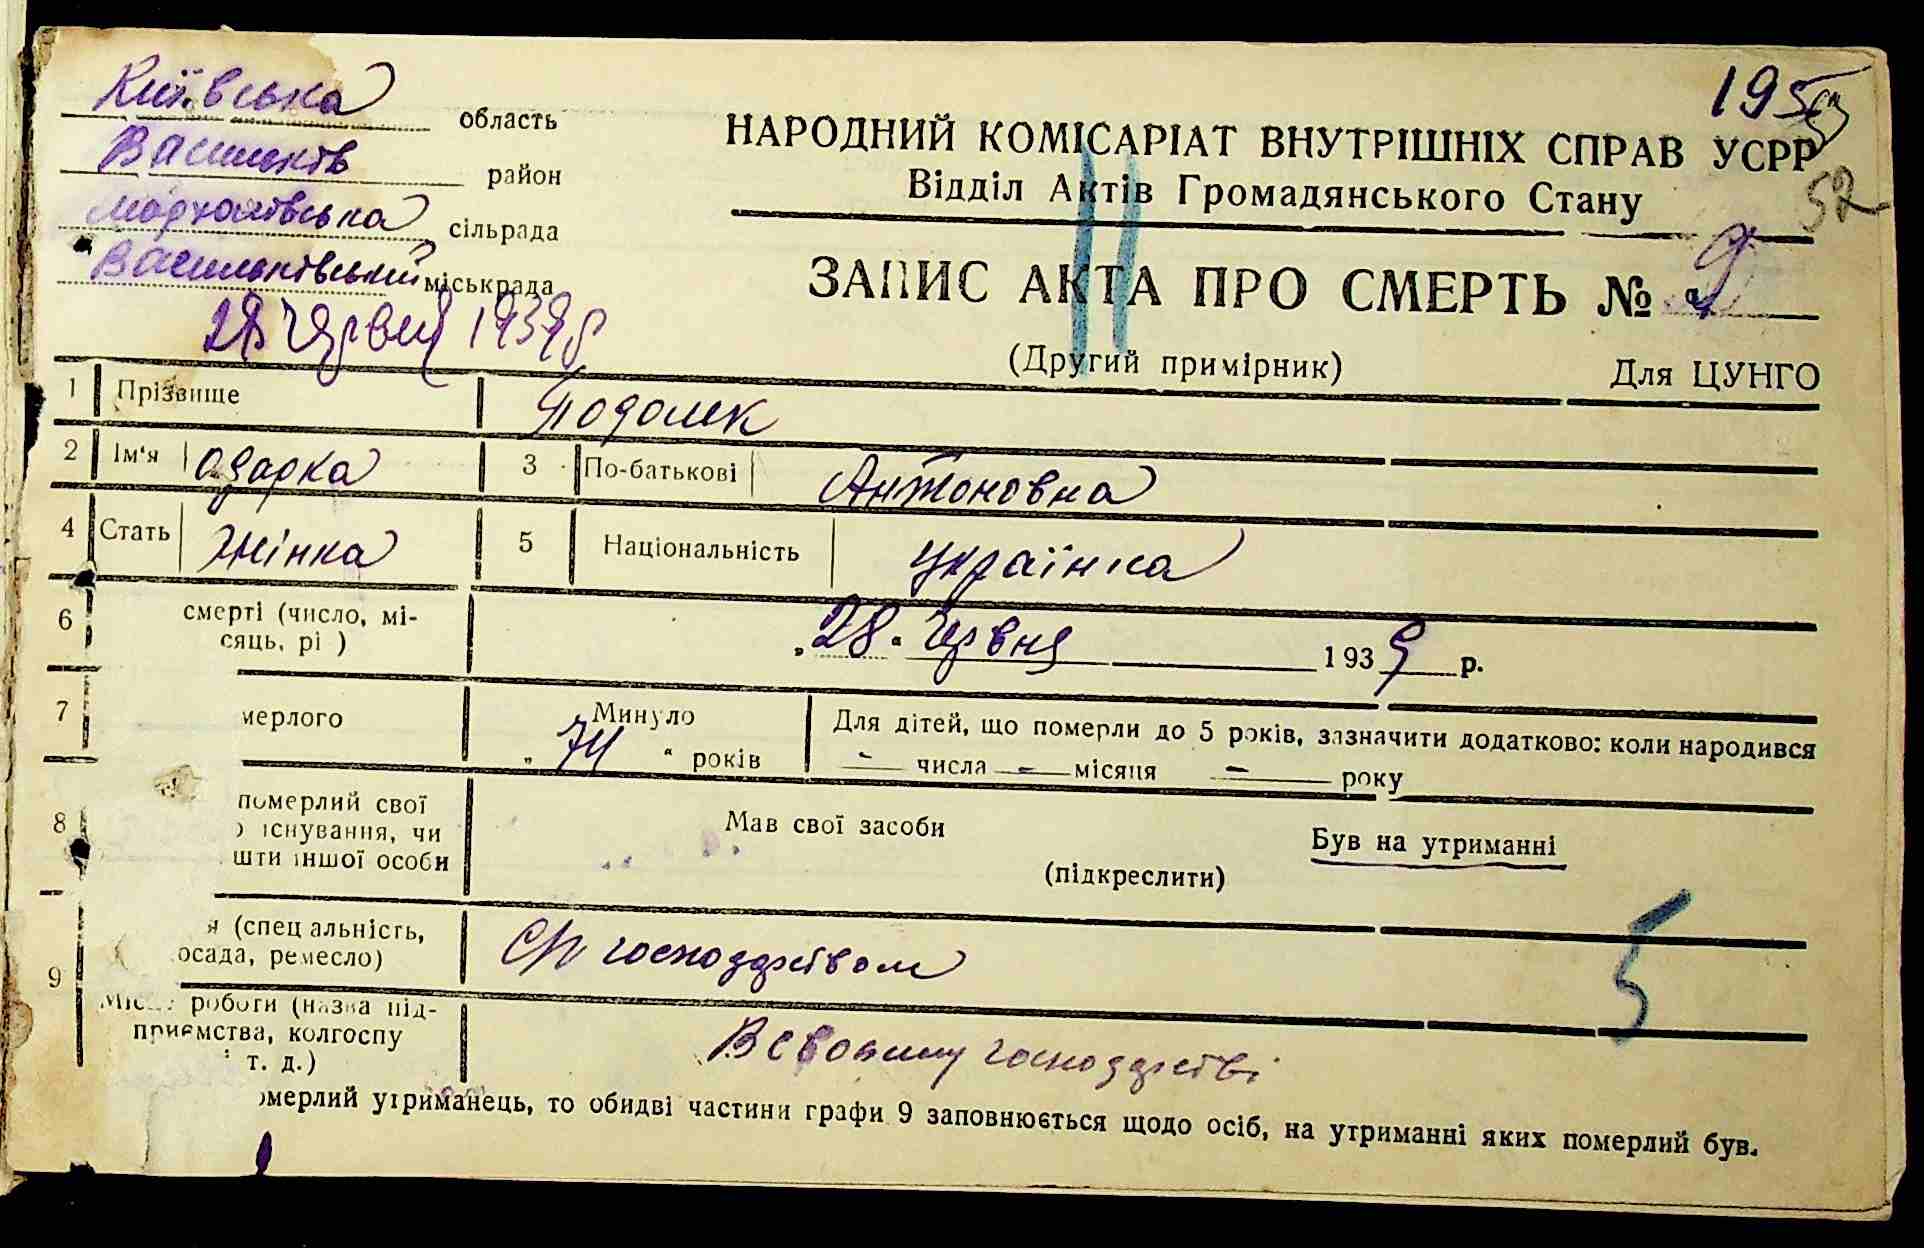 Київська область
Васильків район
сільрада
Васильківський міськрада
28 червня 1939 р
НАРОДНИЙ КОМІСАРІАТ ВНУТРІШНІХ СПРАВ УСРР
52
Відділ Актів Громадянського Стану
ЗАПИС АКТА ПРО СМЕРТЬ № 9
(Другий примірник)
Для ЦУНГО
1 Прізвище Подолек
2 Ім'я Одарка 3 По-батькові Антоновна
4 Стать жінка 5 Національність українка
6 смерті (число, мі-
сяць, рі )
„28" червня 1939 р.
7 мерлого
Минуло
„74" років
Для дітей, що померли до 5 років, зазначити додатково: коли народився
— числа — місяця — року
8 померлий свої
існування, чи
шти іншої особи
Мав свої засоби
Був на утриманні
(підкреслити)
9 я (спец альність,
осада, ремесло)
господарством
5
Місце роботи (назва під-
приємства, колгоспу
і т. д.)
В своэму господарстві
омерлий утриманець, то обидві частини графи 9 заповнюється щодо осіб, на утриманні яких померлий був.